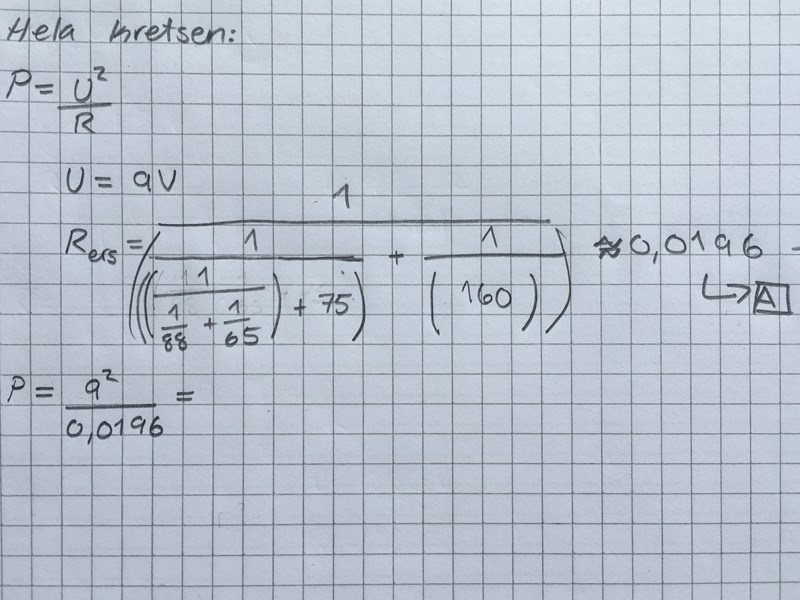 Hela kretsen:
P = U²/R
U = 9V
R_ers = 1/(1/(((1/(1/88 + 1/65)) + 75)) + 1/(160)) ≈ 0,0196
↳ A
P = 9²/0,0196 =